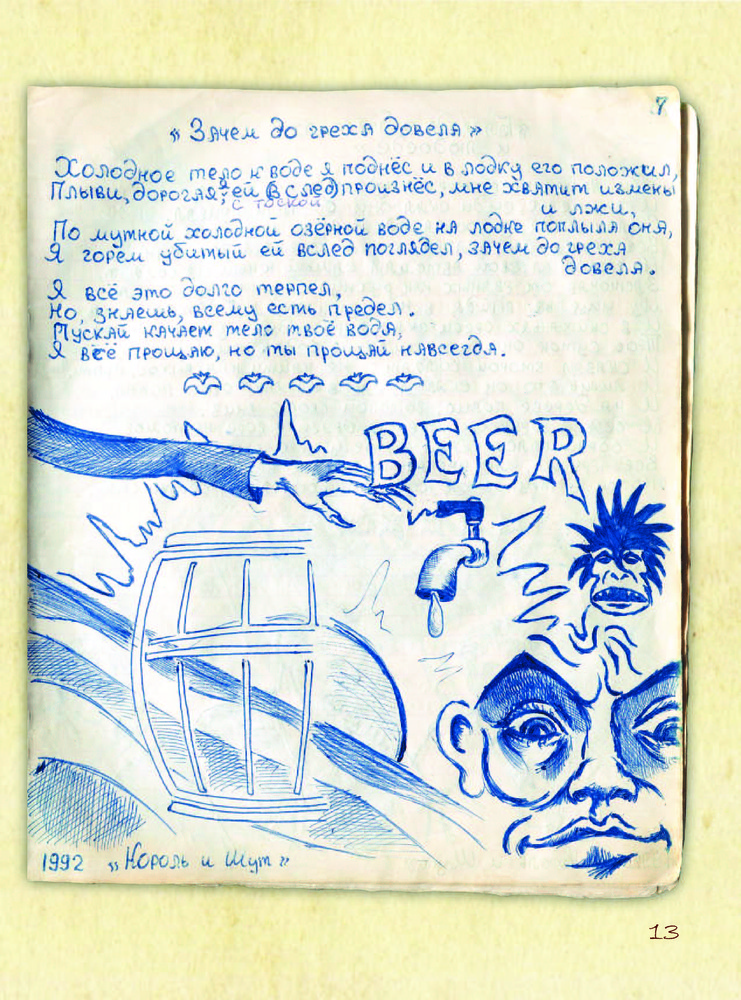 7
« Зачем до греха довела »
Холодное тело к воде я поднёс и в лодку его положил,
Плыви, дорогая, ей вслед произнёс, мне хватит измены
с тоской
и лжи,
По мутной холодной озёрной воде на лодке поплыла она,
Я горем убитый ей вслед поглядел, зачем до греха
довела.
Я всё это долго терпел,
Но, знаешь, всему есть предел.
Пускай качает тело твоё вода,
Я всё прощаю, но ты прощай навсегда.
BEER
1992 «Король и Шут»
13